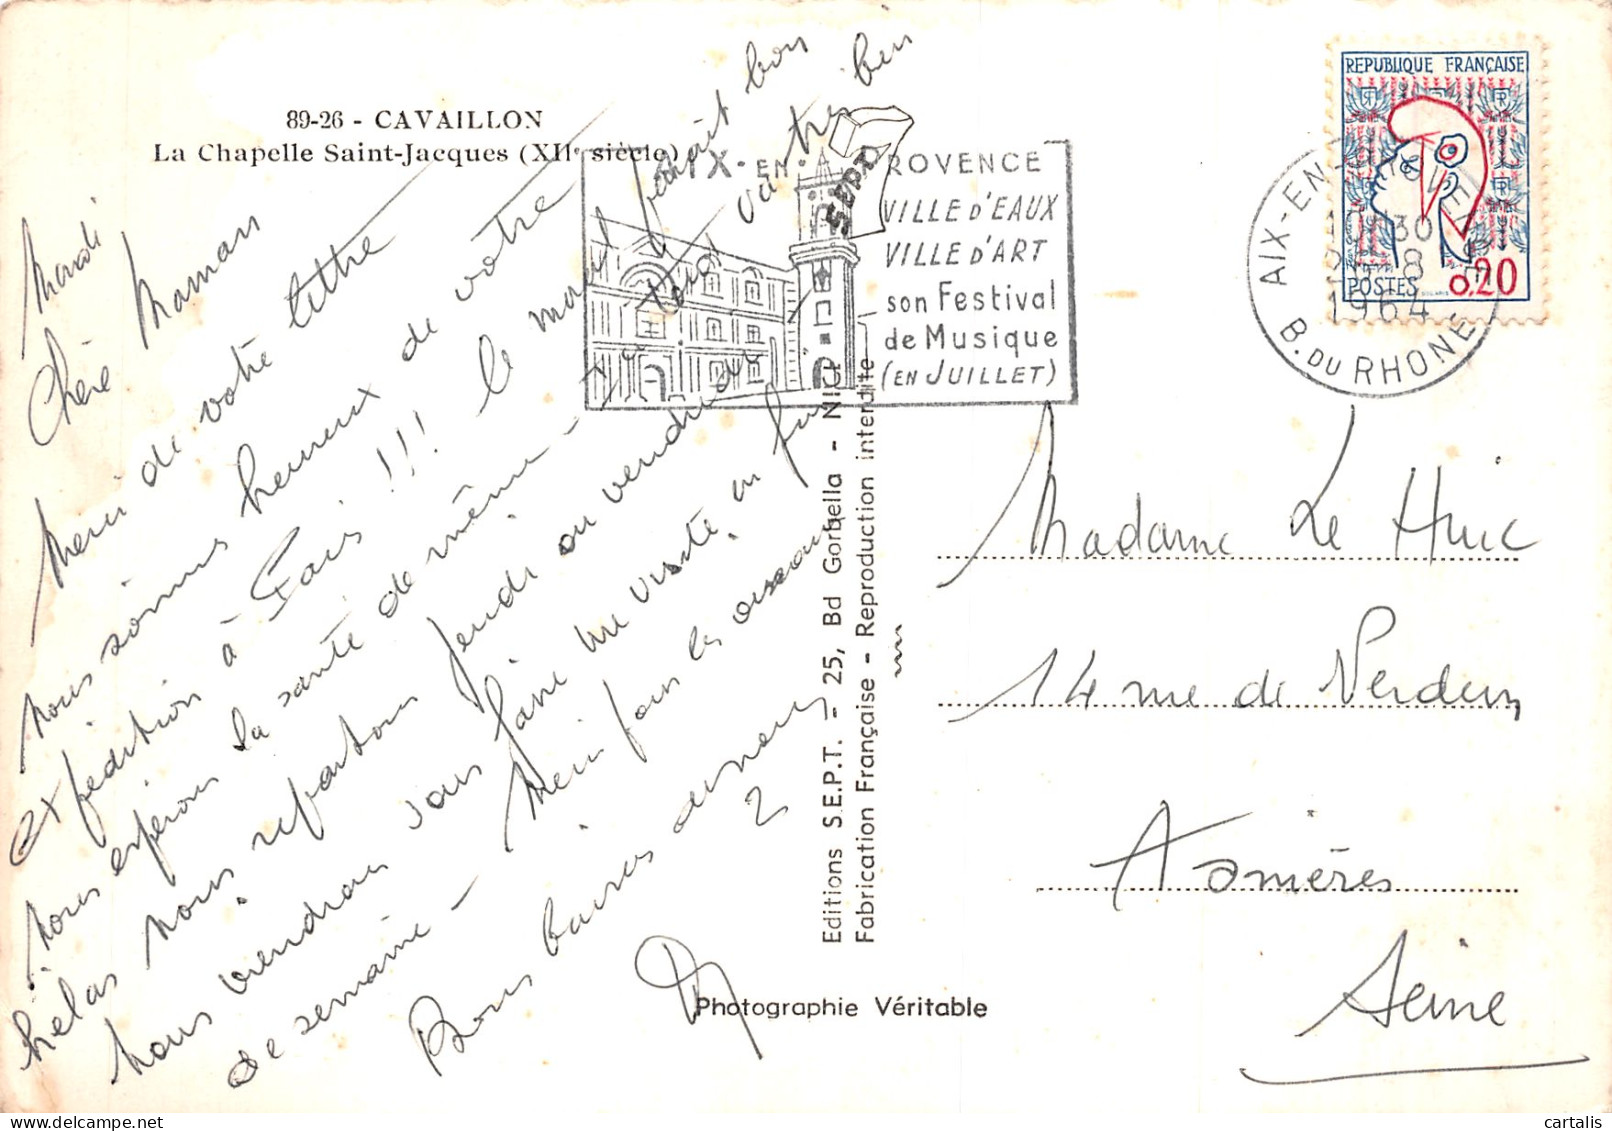 89-26 - CAVAILLON
La Chapelle Saint-Jacques (XIIe siècle)
Mardi
Chère Maman
Merci de votre lettre
nous sommes heureux de votre
expédition à Paris !!! le moral paraît bon
nous espérons la santé de même - Ici tout va très bien
hélas nous repartons jeudi ou vendredi
nous viendrons vous faire une visite en fin
de semaine - Merci pour les oiseaux
Bons baisers des nous
2
Editions S.E.P.T. - 25, Bd Gorbella - NICE
Fabrication Française - Reproduction interdite
SEPT
Photographie Véritable
AIX-EN-PROVENCE
VILLE D'EAUX
VILLE D'ART
son Festival
de Musique
(EN JUILLET)
REPUBLIQUE FRANÇAISE
POSTES
0,20
AIX-EN-PROVENCE
10H30
8
1964
B. DU RHONE
Madame Le Huic
14 rue de Verdun
Asnières
Seine
cartalis